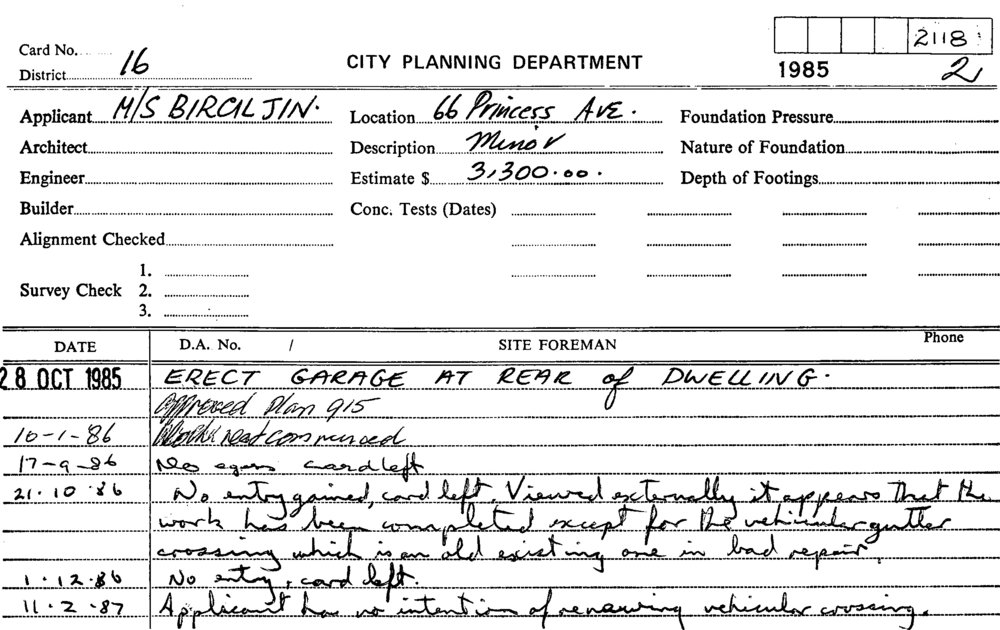 2118
Card No.
District 16
CITY PLANNING DEPARTMENT
1985 2
Applicant M/S BIRCIL JIN. Location 66 Princess AVE. Foundation Pressure
Architect Description Minor Nature of Foundation
Engineer Estimate $ 3,300.00. Depth of Footings
Builder Conc. Tests (Dates)
Alignment Checked
1.
Survey Check 2.
3.
DATE D.A. No. / SITE FOREMAN Phone
28 OCT 1985 ERECT GARAGE AT REAR of DWELLING.
Approved Plan 915
10-1-86 Work not commenced
17-9-86 No card left
21.10.86 No entry gained, card left. Viewed externally it appears that the
work has been completed except for the vehicular gutter
crossing which is an old existing one in bad repair.
1.12.86 No entry, card left.
11.2.87 Applicant has no intention of renewing vehicular crossing.